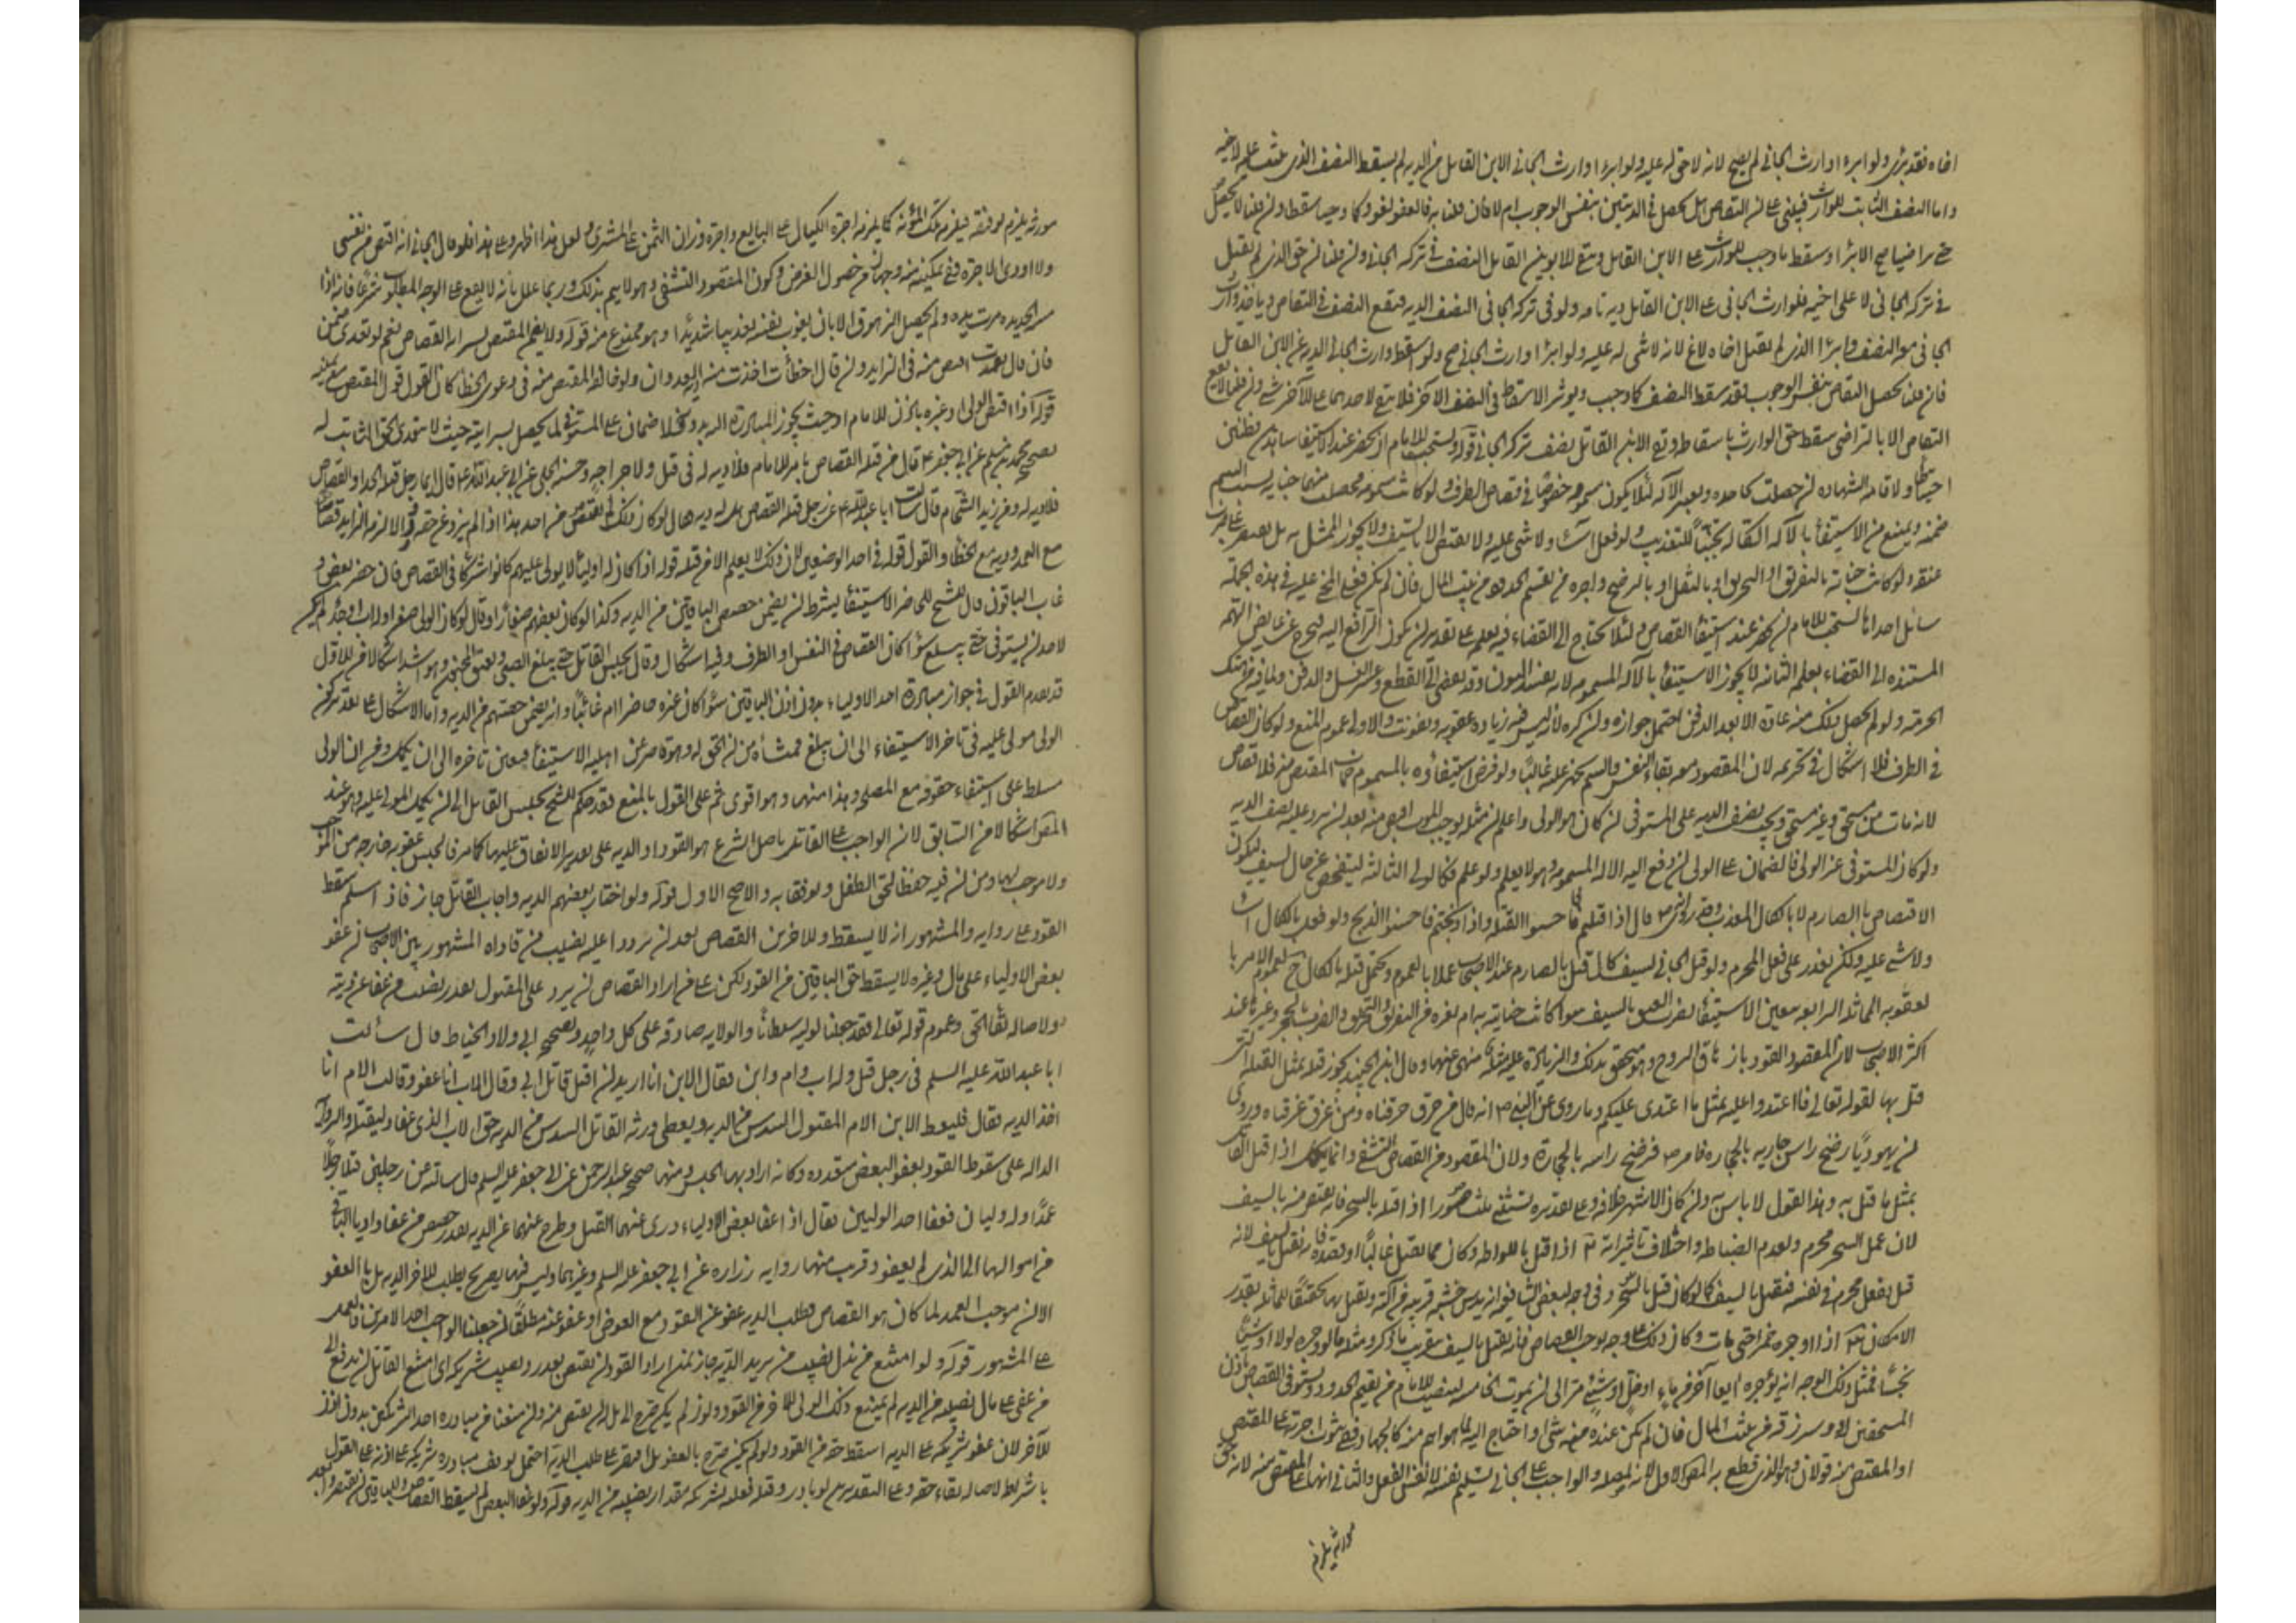 اخاه فقد برئ ولو ابرء اوارث الجانى لم يصح لانه لا حق له عليه ولو ابرء اوارث الجانى الابن القاتل من الديه لم يسقط النصف الذى عليه لاخيه
واما النصف الثابت للوارث فيبنى على ان التقاص هل يحصل فى الدينين بنفس الوجوب ام لا فان قلنا به فالعفو لغو وكما وجبا سقطا وان قلنا لا يحصل
حتى يتراضيا صح الابراء وسقط ما وجب للوارث على الابن القاتل وبقى للابوين القاتل النصف فى تركه الجانى وان قلنا ان حق الذى لم يقتل
فى تركه الجانى لا على اخيه فلوارث الجانى على الابن القاتل ديه تامه وله فى تركه الجانى النصف الديه فيقع النصف فى التقاص وياخذ وارث
الجانى منه النصف ولو ابرء الذى لم يقتل اخاه لاغ لانه لا شى له عليه ولو ابرء اوارث الجانى صح ولو اسقط وارث الجانى الديه عن الابن القاتل
فان قلنا يحصل التقاص بنفس الوجوب فقد سقط النصف كما وجب ويوثر الاسقاط فى النصف الاخر فلا يبقى لاحدهما على الاخر شى وان قلنا لا يقع
التقاص الا بالتراضى سقط حق الوارث باسقاطه وبقى للابن القاتل نصف تركه الجانى قوله ويستحب للامام ان يحضر عند الاستيفا شاهدين فطنين
احتياطا ولاقامه الشهاده ان حصلت مجاحده ويعتبر الاله لئلا يكون مسمومه خصوصا فى قصاص الطرف ولو كانت مسمومه فحصلت منهما جنايه بسبب السم
ضمنه ويمنع من الاستيفا بالاله الكاله تجنبا للتعذيب ولو فعل اساء ولا شى عليه ولا يقتص الا بالسيف ولا يجوز التمثيل به بل يقتصر على ضرب
عنقه ولو كانت جنايته بالتغريق او التحريق او بالمثقل او بالرضخ واجره من يقيم الحدود من بيت المال فان لم يكن فعلى المجنى عليه فى هذه الجمله
مسائل احداها يستحب للامام ان يحضر عند استيفا القصاص ولئلا يحتاج الى القضاء فيه بعلمه على تقدير ان يكون الترافع اليه فيخرج عن تعارض التهم
المستنده الى القضاء بعلمه الثانيه لا يجوز الاستيفا بالاله المسمومه لانه يفسد البدن وقد يفضى الى القطع وعسر الغسل والدفن ولما فيه من هتك
الحرمه ولو لم يحصل بذلك منه عاده الا بعد الدفن احتمل جوازه وان كره لانه ليس فيه زياده عقوبه وتعويق والاولى عموم المنع ولو كان القصاص
فى الطرف فلا اشكال فى تحريمه لان المقصود معه بقاء النفس والسم يجهز عليه غالبا ولو فرض استيفاؤه بالمسموم فمات المقتص منه فلا قصاص
لانه مات من مستحق وغير مستحق ويجب نصف الديه على المستوفى ان كان هو الولى واعلم ان مثله يوجب الموت اقتص منه بعد ان يرد عليه نصف الديه
ولو كان المستوفى غير الولى فالضمان على الولى ان دفع اليه الاله المسمومه وهو لا يعلم ولو علم فكالولى الثالثه ليتفحص عن حال السيف ليكون
الاقتصاص بالصارم لا بالكال المعذب وقد روى انه ص قال اذا قتلتم فاحسنوا القتله واذا ذبحتم فاحسنوا الذبح ولو فعل بالكال اساء
ولا شى عليه ولكن يعزر على فعل المحرم ولو قتل الجانى بسيف كال قتل بالصارم عند الاصحاب عملا بالعموم ويحتمل قتله بالكال ح لعموم الامر با
لعقوبه المماثله الرابعه يتعين الاستيفا بضرب العنق بالسيف سواء كانت جنايته به ام بغيره من التغريق والتحريق والضرب بالحجر وغيرها عند
اكثر الاصحاب لان المقصود القود بازهاق الروح وهو يتحقق بذلك والزياده عليه مثله منهى عنها وقال ابن الجنيد يجوز قتله بمثل القتله التى
قتل بها لقوله تعالى فاعتدوا عليه بمثل ما اعتدى عليكم وما روى عن النبى ص انه قال من حرق حرقناه ومن غرق غرقناه وروى
ان يهوديا رضخ راس جاريه بالحجاره فامر ص فرضخ راسه بالحجارة ولان المقصود من القصاص التشفى وانما يكمل اذا قتل القاتل
بمثل ما قتل به وهذا القول لا باس به وان كان الاشهر خلافه وعلى تقديره تستثنى ثلث صورا اذا قتله بالسحر فانه يقتص منه بالسيف
لان عمل السحر محرم ولعدم انضباطه واختلاف تاثيراته ٢ اذا قتل باللواط وكان مما يقتل غالبا او بقده فانه يقتل بالسيف لانه
قتل بفعل محرم فى نفسه فيقتل بالسيف كما لو كان قتل بالسحر وفى وجه لبعض الشافعيه انه يدس خشبه قريبه من آلته ويقتل بها تحقيقا للمماثله بقدر
الامكان ٣ اذا اوجره خمرا حتى مات وكان ذلك على وجه يوجب القصاص فانه يقتل بالسيف لقرب ما ذكر ومثله ما لو وجره بولا او شيئا
نجسا فمثل ذلك الوجه انه يؤجره ايضا اخر من ماء او خل او شئ مر الى ان يموت الخامسه ينبغى للامام ان يقيم الحدود ويستوفى القصاص باذن
المستحقين له ورزقه من بيت المال فان لم يكن عنده فيه شى او احتاج اليه لما هو اهم منه كالجهاد ففى ثبوت اجرته على المقتص
او المقتص منه قولان وهو الذى قطع به المص الاول لانه لمصلحه والواجب على الجانى تسليم نفسه لا نفس الفعل والثانى انها على المقتص منه لانه حق
مورثه يلزم
مورثه يلزم توفيته فيلزمه تلك المؤنه كما يلزمه اجرة الكيال على البايع واجرة وزان الثمن على المشترى ولعل هذا اظهر وعلى هذا فلو قال الجانى انه اقتص من نفسى
ولا اؤدى الاجره ففى تمكينه منه وجهان من حصول الغرض وكون المقصود التشفى وهو لا يتم بذلك وربما علل بانه لا يقع على الوجه المطلوب شرعا فانه اذا
مس الحديده برت يده ولم يحصل الزهوق الا بان يعذب نفسه تعذيبا شديدا وهو ممنوع منه قوله ولا يضمن المقتص لسرايه القصاص نعم لو تعدى ضمن
فان قال تعمدت اقتص منه فى الزايد وان قال اخطأت اخذت منه ديه العدوان ولو خالفه المقتص منه فى دعوى الخطا كان القول قول المقتص مع يمينه
قوله اذا اقتص الولى او غيره باذن الامام او حيث يجوز المبادرة اليه بدونه فلا ضمان على المستوفى لما يحصل بسرايته حيث لا يتعدى الحق الثابت له
لصحيح محمد بن مسلم عن ابى جعفر ع قال من قتله القصاص بامر الامام فلا ديه له فى قتل ولا جراحه وحسنه الحلبى عن ابى عبد الله ع قال ايما رجل قتله الحد او القصاص
فلا ديه له وعن زيد الشحام قال سالت ابا عبد الله ع عن رجل قتله القصاص هل له ديه فقال لو كان ذلك لم يقتص من احد هذا اذا لم يزد عن حقه والا لزمه الزايد قصاصا
مع العمد وديه مع الخطا والقول قوله فى احد الوضعين لان ذلك لا يعلم الا من قبله قوله اذا كان له اولياء لا يولى عليهم كانوا شركا فى القصاص فان حضر بعض و
غاب الباقون قال الشيخ للحاضر الاستيفا بشرط ان يضمن حصص الباقين من الديه وكذا لو كان بعضهم صغارا وقال لو كان الولى صغيرا وله اب او جد لم يكن
لاحد ان يستوفى حتى يبلغ سواء كان القصاص فى النفس او الطرف وفيه اشكال وقال يحبس القاتل حتى يبلغ الصبى ويفيق المجنون وهو اشد اشكالا من الاول
قد تقدم القول فى جواز مبادرة احد الاولياء بدون اذن الباقين سواء كان غيره حاضرا ام غائبا وانه يضمن حصتهم من الديه واما الاشكال على تقدير كون
الولى مولى عليه فى تاخر الاستيفاء الى ان يبلغ فمنشأه من ان الحق له وهو قاصر عن اهليه الاستيفا فيتعين تاخره الى ان يكمل ومن ان الولى
مسلط على استيفاء حقوقه مع المصلحه وهذا منها وهو اقوى ثم على القول بالمنع فقد حكم الشيخ بحبس القاتل الى ان يكمل المولى عليه وهو عند
المص اشكالا من السابق لان الواجب على القاتل باصل الشرع هو القود او الديه على تقدير الاتفاق عليها كما مر فالحبس عقوبه خارجه من الموجب
ولا موجب لها ومن ان فيه حفظا لحق الطفل وتوفقا به والاصح الاول قوله ولو اختار بعضهم الديه واجاب القاتل جاز فاذا اسلم سقط
القود على روايه والمشهور انه لا يسقط وللاخرين القصاص بعد ان يردوا عليه نصيب من فاداه المشهور بين الاصحاب ان عفو
بعض الاولياء على مال وغيره لا يسقط حق الباقين من القود لكن على من اراد القصاص ان يرد على المقتول بقدر نصيب من عفا عن ديته
ولاصاله بقاء الحق وعموم قوله تعالى فقد جعلنا لوليه سلطانا والولايه صادقه على كل واحد ولصحيح ابى ولاد الحناط قال سألت
ابا عبد الله عليه السلم فى رجل قتل وله اب وام وابن فقال الابن انا اريد ان اقتل قاتل ابى وقال الاب انا اعفو وقالت الام انا
اخذ الديه فقال فليعط الابن ام المقتول السدس من الديه ويعطى ورثه القاتل السدس من الديه حق الاب الذى عفا وليقتله والروايه
الداله على سقوط القود بعفو البعض متعدده وكانه اراد بها الجنس ومنها صحيح عبد الرحمن عن ابى جعفر عليه السلم قال سالته عن رجلين قتلا رجلا
عمدا وله وليان فعفا احد الوليين فقال اذا عفا بعض الاولياء درى عنهما القتل وطرح عنهما من الديه بقدر حصه من عفا واديا الباقى
من اموالهما الى الذى لم يعف وقريب منها روايه زراره عن ابى جعفر عليه السلم وغيرهما وليس فيها تصريح بطلب الاخر الديه بل بالعفو
الا ان موجب العمد لما كان هو القصاص فطلب الديه عفو عن القود مع العوض او عفو عنه مطلقا ان جعلنا الواجب احد الامرين فالعمد
على المشهور قوله ولو امتنع من بذل نصيب من يريد الديه جاز لمن اراد القود ان يقتص بعد رد نصيب شريكه اى امتنع القاتل ان يدفع الى
من عفى على مال نصيبه من الديه لم يمنع ذلك الولى الاخر من القود ولو لم يكن صرح بل لم يقتص منه وان منعنا من مبادره احد الشريكين بدون اذن
الآخر لان عفو شريكه على الديه اسقط حقه من القود ولو لم يكن صرح بالعفو بل اقتصر على طلب الديه احتمل توقف مبادره شريكه على اذنه على القول
باشتراطه لاصاله بقاء حقه وعلى التقديرين لو بادر وقتله فعليه لشريكه مقدار نصيبه من الديه قوله ولو عفا البعض لم يسقط القصاص وللباقين ان يقتصوا بعد